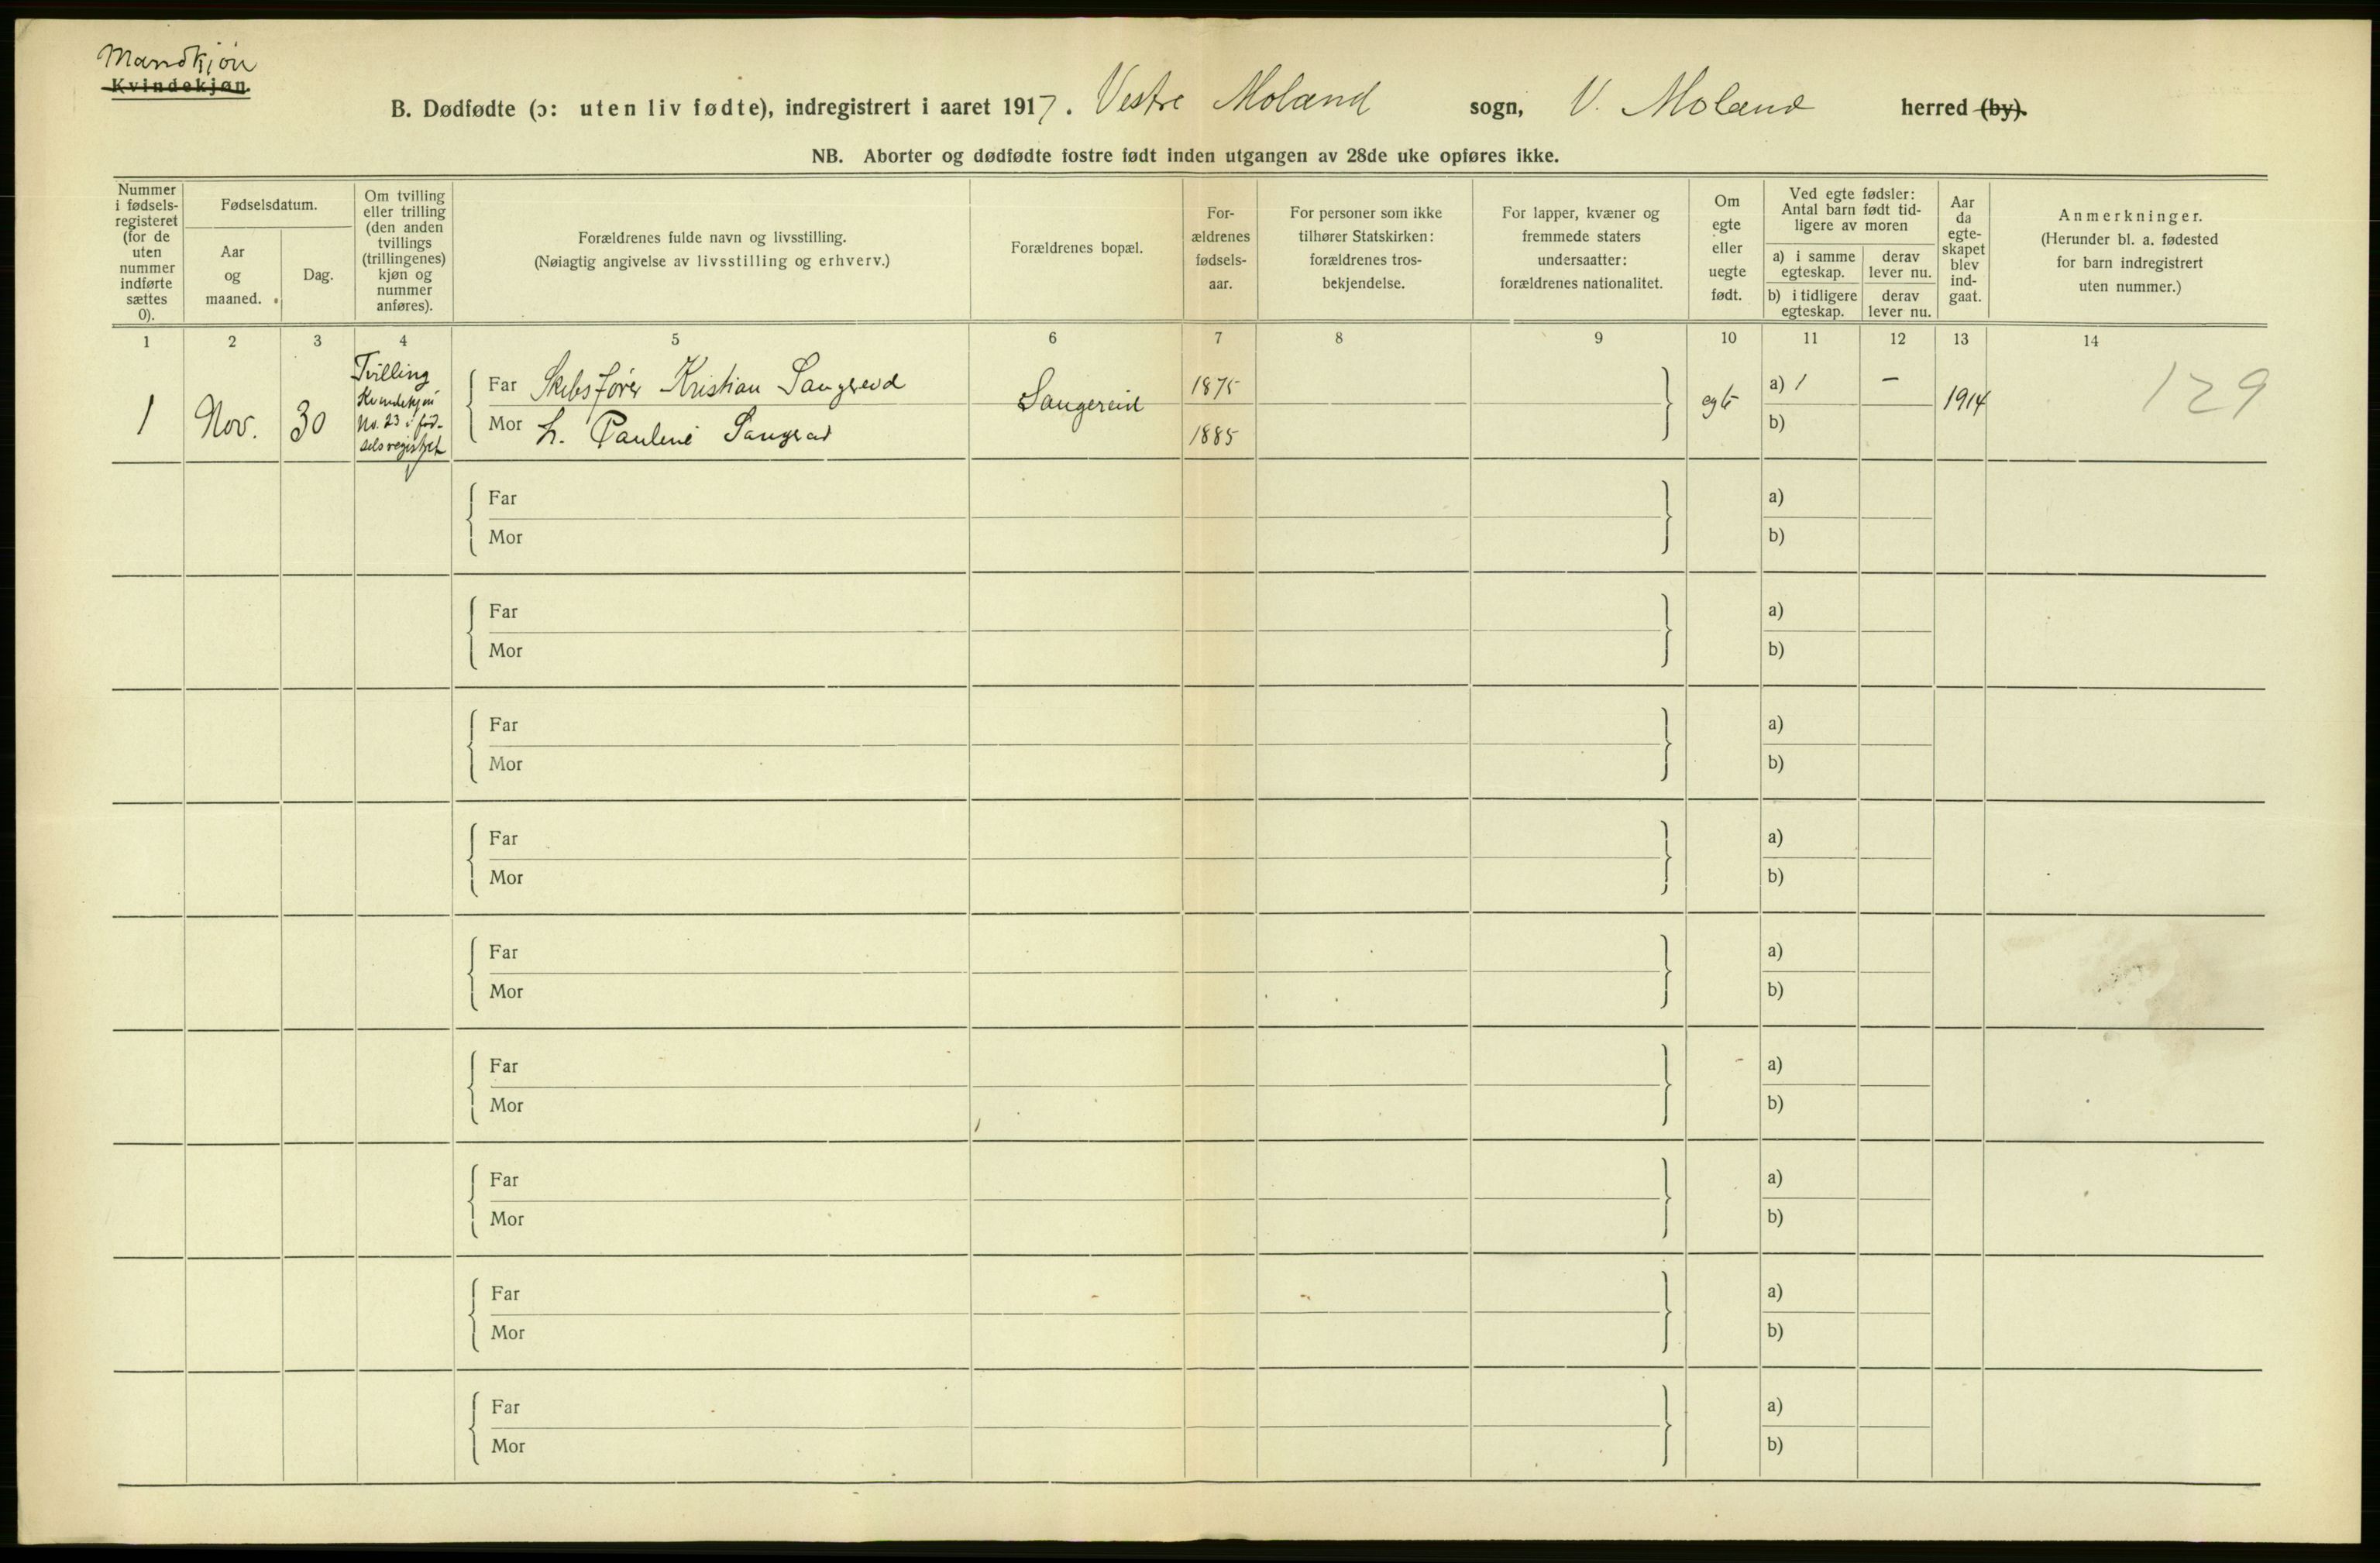 Mandkjøn
Kvindekjøn.
B. Dødfødte (ɔ: uten liv fødte), indregistrert i aaret 1917. Vestre Moland sogn, V. Moland herred (by).
NB. Aborter og dødfødte fostre født inden utgangen av 28de uke opføres ikke.
Nummer
i fødsels-
registeret
(for de
uten
nummer
indførte
sættes
0).
Fødselsdatum.
Aar
og
maaned.
Dag.
Om tvilling
eller trilling
(den anden
tvillings
(trillingenes)
kjøn og
nummer
anføres).
Forældrenes fulde navn og livsstilling.
(Nøiagtig angivelse av livsstilling og erhverv.)
Forældrenes bopæl.
For-
ældrenes
fødsels-
aar.
For personer som ikke
tilhører Statskirken:
forældrenes tros-
bekjendelse.
For lapper, kvæner og
fremmede staters
undersaatter:
forældrenes nationalitet.
Om
egte
eller
uegte
født.
Ved egte fødsler:
Antal barn født tid-
ligere av moren
a) i samme
egteskap.
derav
lever nu.
b) i tidligere
egteskap.
derav
lever nu.
Aar
da
egte-
skapet
blev
ind-
gaat.
Anmerkninger.
(Herunder bl. a. fødested
for barn indregistrert
uten nummer.)
1 2 3 4 5 6 7 8 9 10 11 12 13 14
1
Nov.
30
Tvilling
Kvindekjøn
No. 23 i fød-
selsregistret
Far Skibsfører Kristian Sangereid
Mor L. Pauline Sangereid
Sangereid
1875
1885
egte
a) 1 –
b)
1914
129
Far a)
Mor b)
Far a)
Mor b)
Far a)
Mor b)
Far a)
Mor b)
Far a)
Mor b)
Far a)
Mor b)
Far a)
Mor b)
Far a)
Mor b)
Far a)
Mor b)